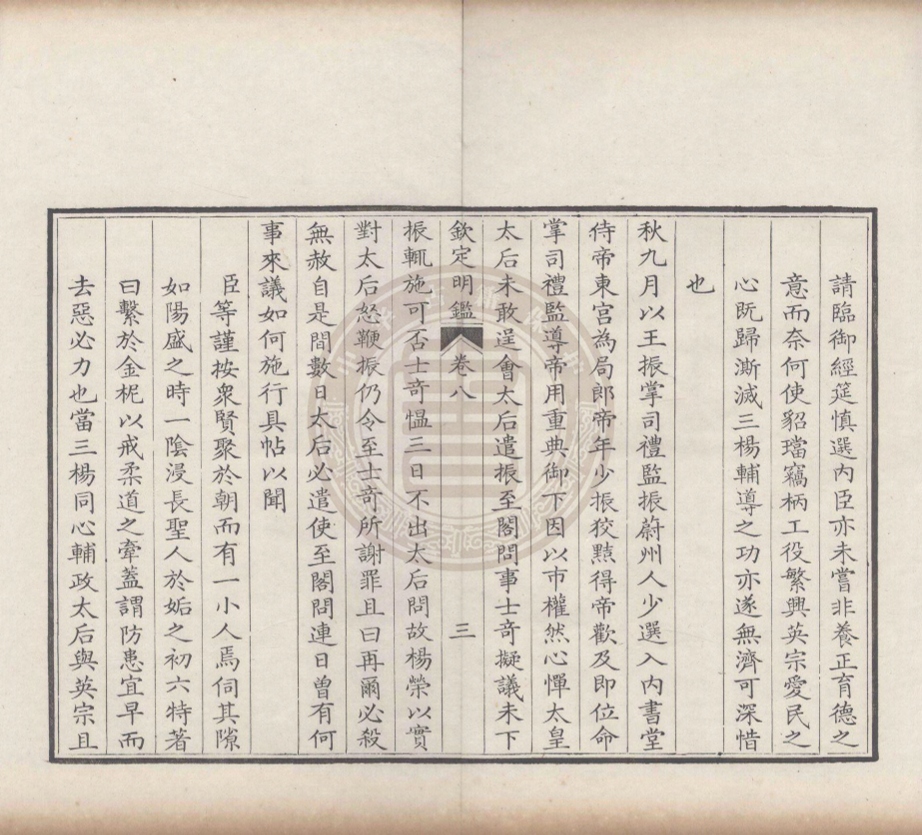 請臨御經筵慎選內臣亦未嘗非養正育德之
意而奈何使貂璫竊柄工役繁興英宗愛民之
心旣歸澌滅三楊輔導之功亦遂無濟可深惜
也
秋九月以王振掌司禮監振蔚州人少選入內書堂
侍帝東宮為局郎帝年少振狡黠得帝歡及即位命
掌司禮監導帝用重典御下因以市權然心憚太皇
太后未敢逞會太后遣振至閣問事士奇擬議未下
欽定明鑑 卷八 三
振輒施可否士奇慍三日不出太后問故楊榮以實
對太后怒鞭振仍令至士奇所謝罪且曰再爾必殺
無赦自是間數日太后必遣使至閣問連日曾有何
事來議如何施行具帖以聞
臣等謹按衆賢聚於朝而有一小人焉伺其隙
如陽盛之時一陰浸長聖人於姤之初六特著
曰繫於金柅以戒柔道之牽蓋謂防患宜早而
去惡必力也當三楊同心輔政太后與英宗且